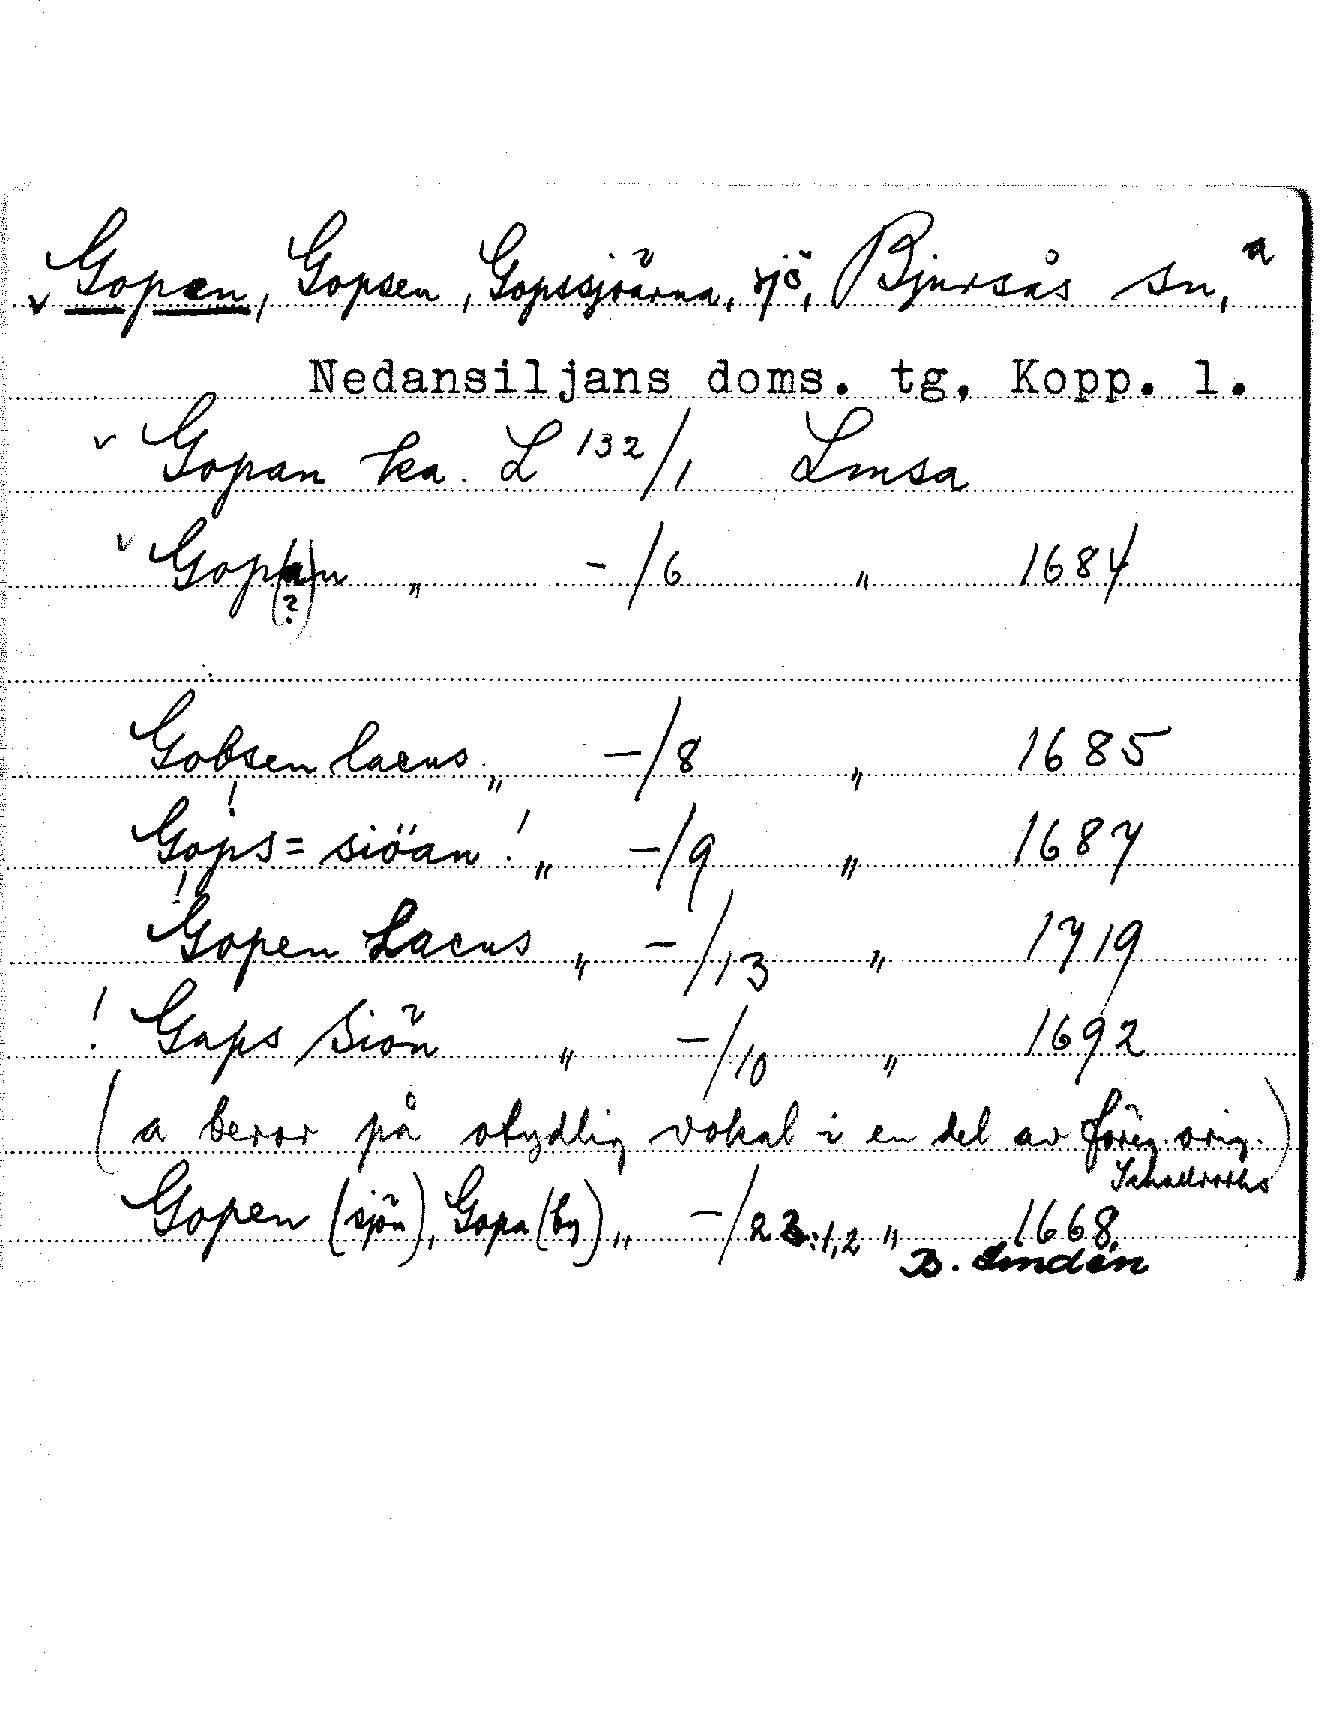 v Gopen, Gopsen, Gopssjöarna, sjö, Bjursås sn, a
Nedansiljans doms. tg, Kopp. l.
v Gopan ka. L 132/1 Lmsa
v Gop(a)n " -/6 " 1684
(?)
Gobsen lacus " -/8 " 1685
!
Gops= siöan! " -/9 " 1687
!
Gopen Lacus " -/13 " 1719
! Gaps Siön " -/10 " 1692
(a beror på otydlig vokal i en del av föreg. orig.)
Gopen (sjön), Gopa (by) " -/23:1,2 " 1668
B. Lindén